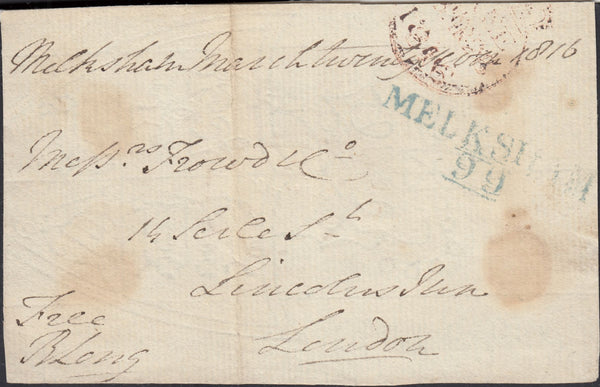 Melksham March twenty one 1816
MELKSHAM
99
Messrs Frowd & Co
14 Serle St
Lincolns Inn
London
Free
R Long